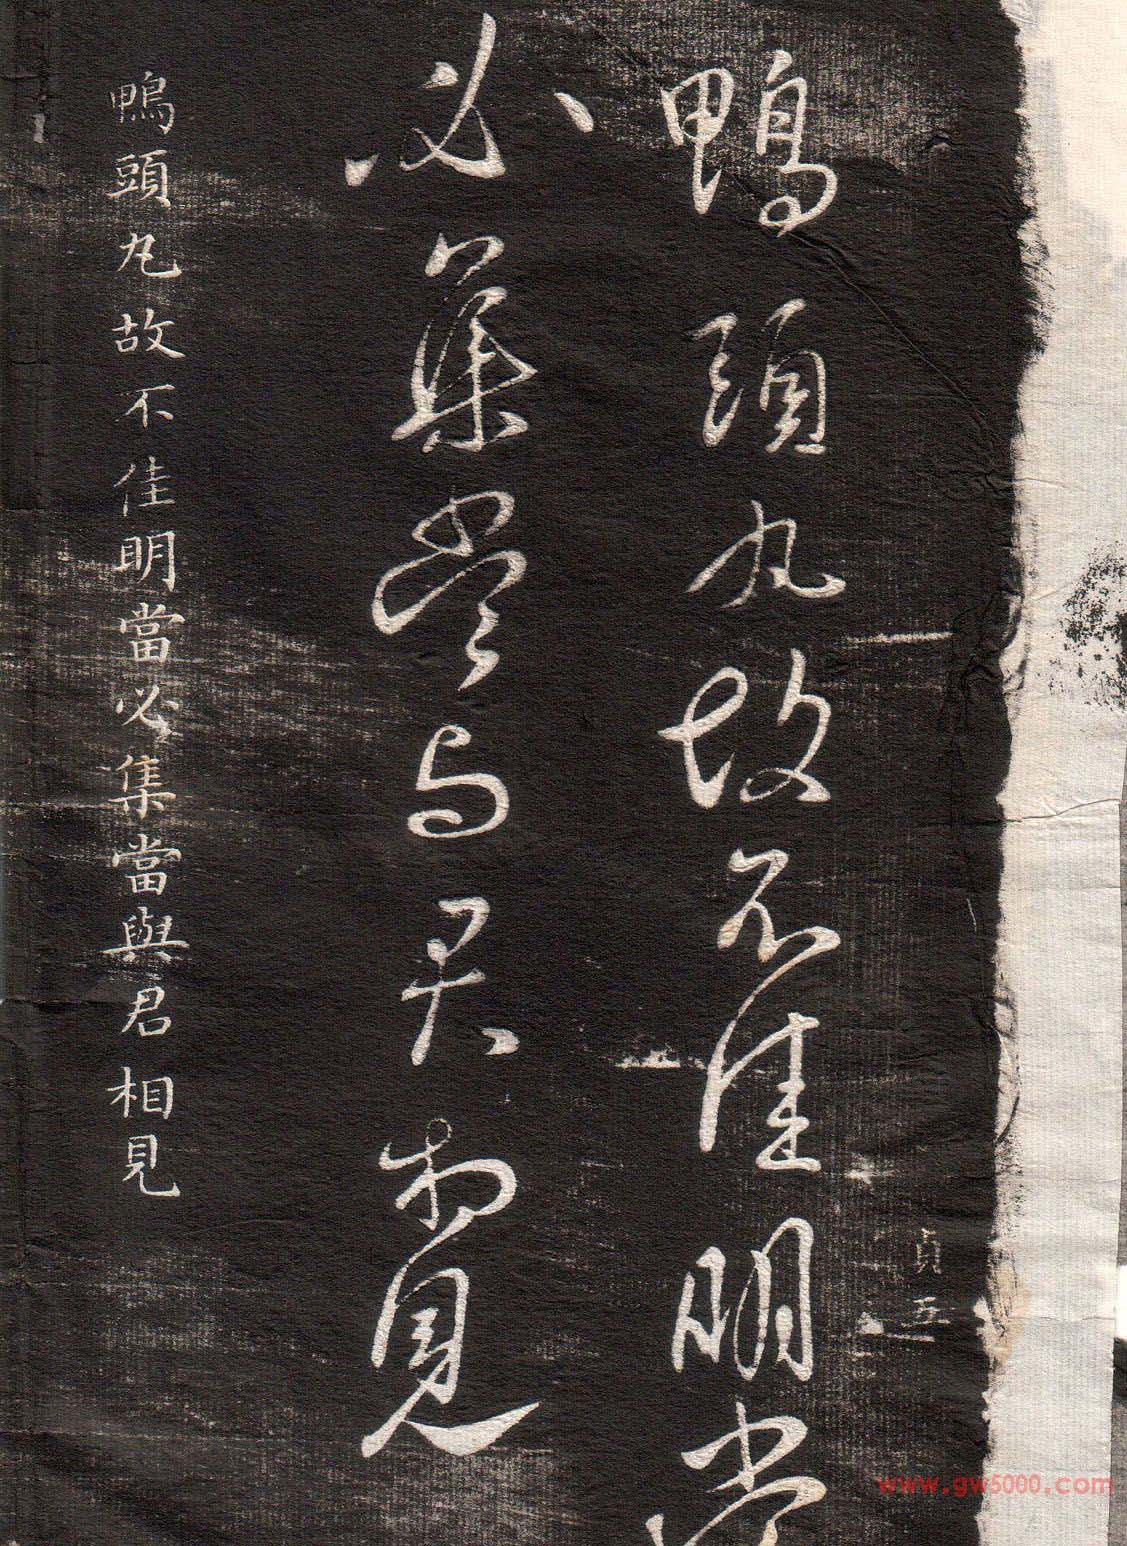 鴨頭丸故不佳明當
必集當與君相見
鴨頭丸故不佳明當必集當與君相見
貞五
www.gw5000.com